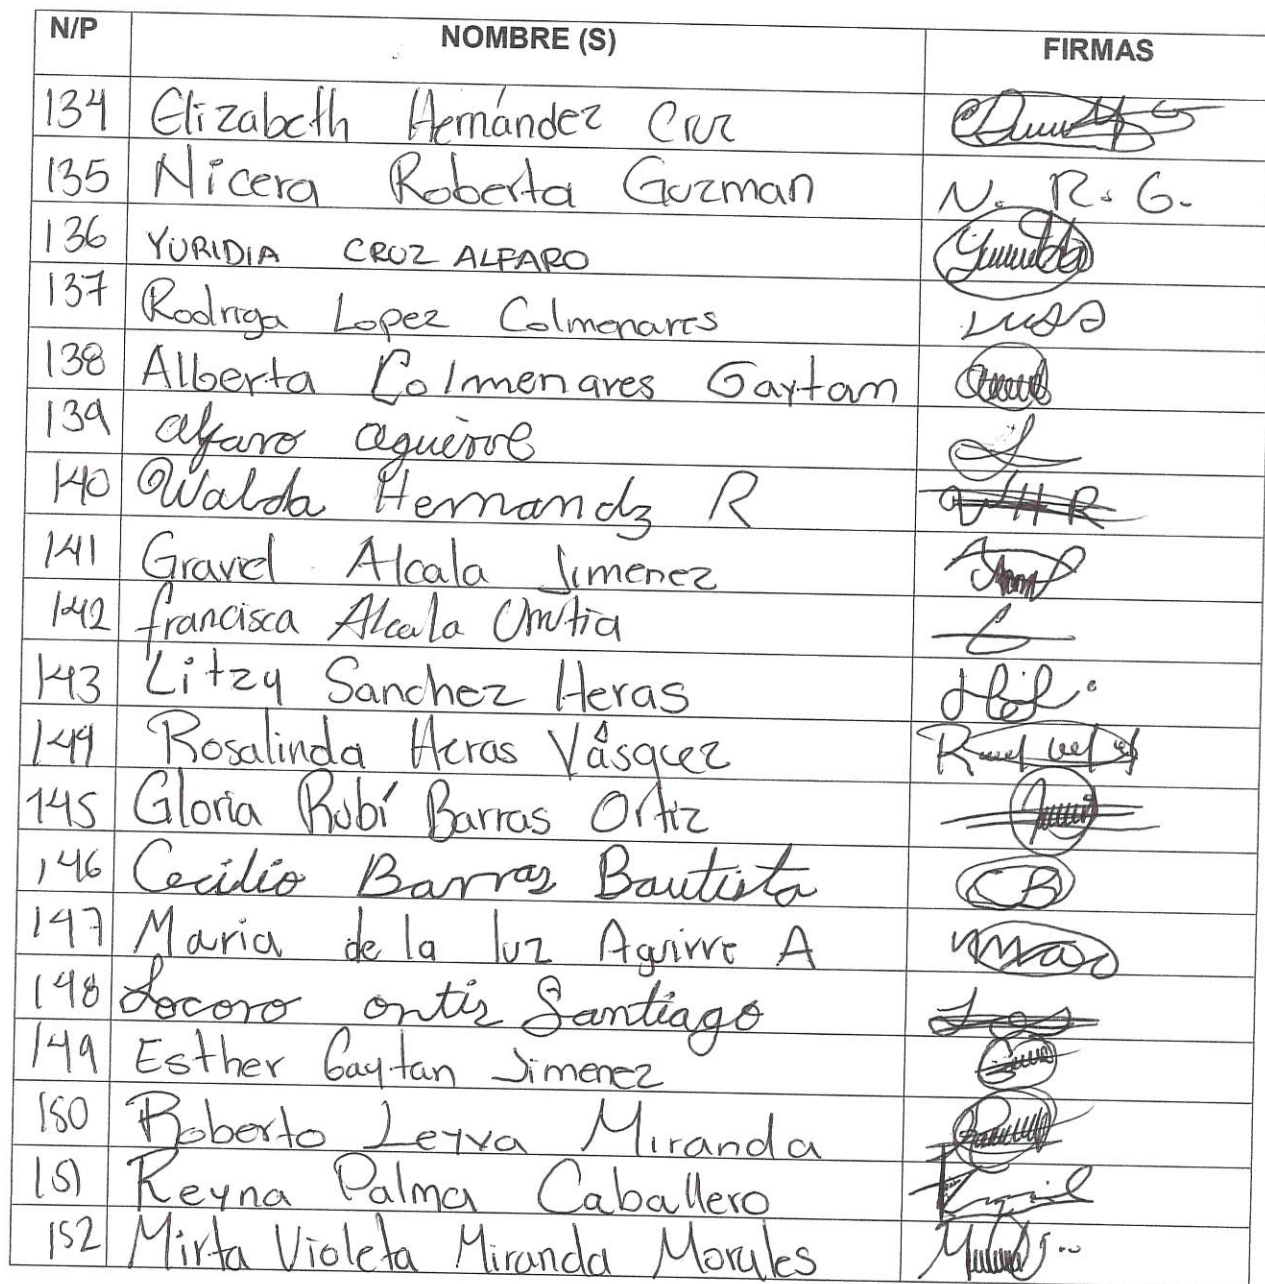 N/P NOMBRE (S) FIRMAS
134 Elizabeth Hernández Cruz
135 Nicera Roberta Guzman N. R. G.
136 YURIDIA CRUZ ALFARO
137 Rodriga Lopez Colmenares
138 Alberta Colmenares Gaytam
139 alfaro aguirre
140 Walda Hernandz R VHR
141 Graviel Alcala Jimenez
142 francisca Alcala
143 Litzy Sanchez Heras
144 Rosalinda Heras Vásquez
145 Gloria Rubí Barras Ortiz
146 Cecilio Barras Bautista CB
147 Maria de la luz Aguirre A
148 Socoro ortiz Santiago
149 Esther Gaytan Jimenez
150 Roberto Leyva Miranda
151 Reyna Palma Caballero
152 Mirta Violeta Miranda Morales